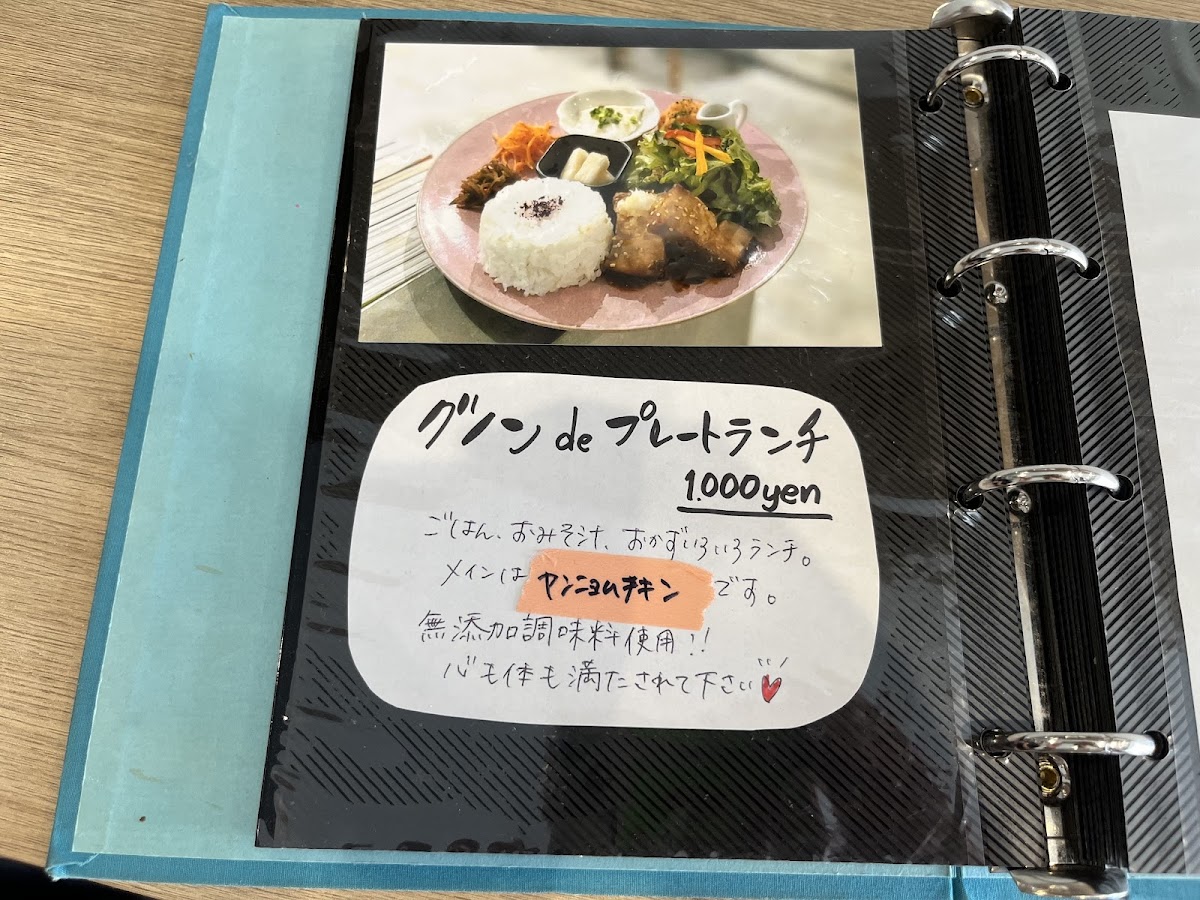 グノン de プレートランチ
1.000yen
ごはん、おみそ汁、おかずいろいろランチ。
メインは ヤンニョムチキン です。
無添加調味料使用!!
心も体も満たされて下さい